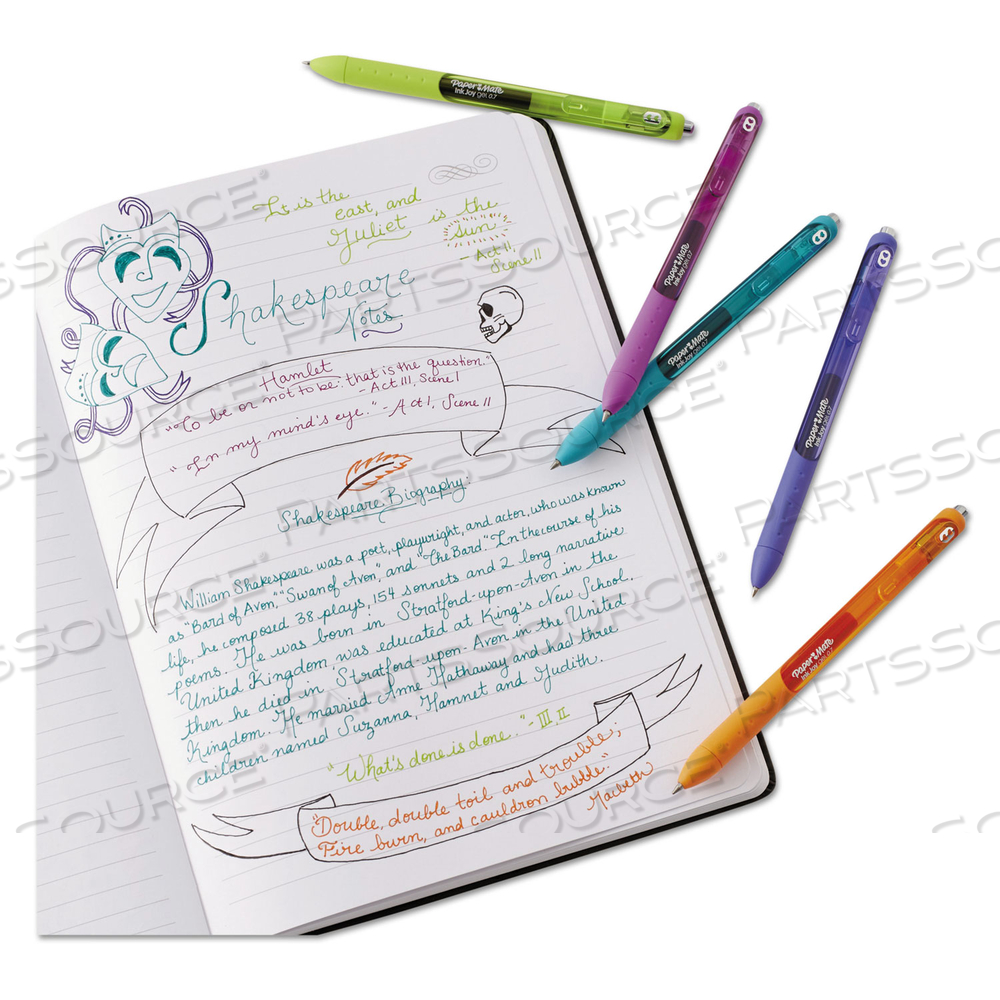 Paper Mate
InkJoy gel 0.7
It is the
east, and
Juliet is the
sun
- Act II,
Scene II
Shakespeare
Notes
Hamlet
"To be or not to be: that is the question."
- Act III, Scene I
"In my mind's eye." - Act I, Scene II
Shakespeare Biography:
William Shakespeare was a poet, playwright, and actor, who was known
as "Bard of Avon," "Swan of Avon," and "The Bard." In the course of his
life, he composed 38 plays, 154 sonnets and 2 long narrative
poems. He was born in Stratford-upon-Avon in the
United Kingdom, was educated at King's New School,
then he died in Stratford-upon-Avon in the United
Kingdom. He married Anne Hathaway and had three
children named Suzanna, Hamnet and Judith.
"What's done is done." - III, II
"Double, double toil and trouble;
Fire burn, and cauldron bubble."
Macbeth
Paper Mate
InkJoy gel 0.7
Paper Mate
InkJoy gel 0.7
Paper Mate
InkJoy gel 0.7
Paper Mate
InkJoy gel 0.7
PARTSSOURCE®